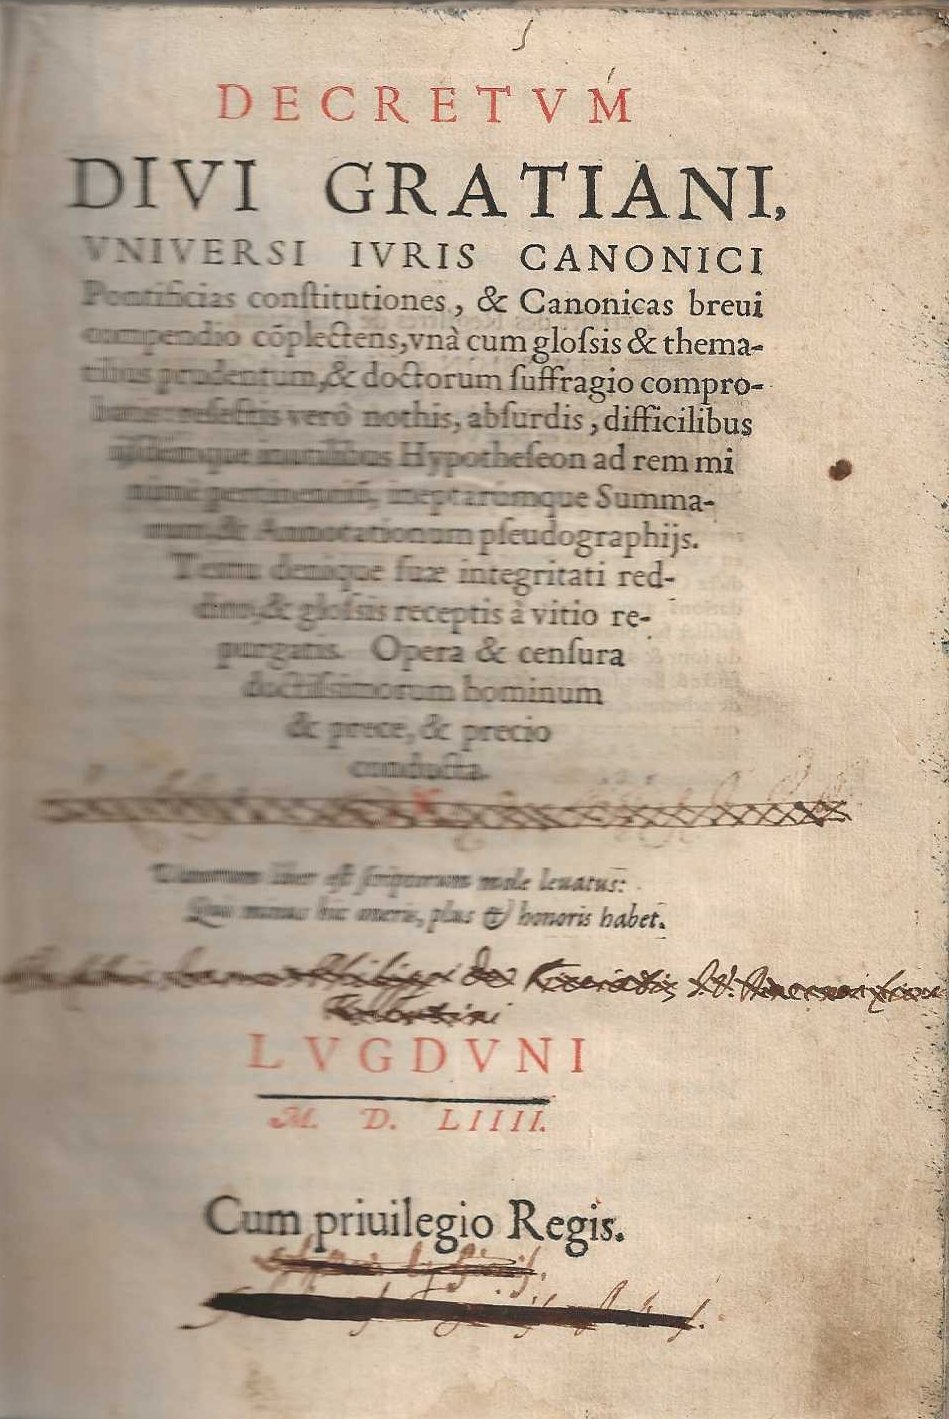 DECRETVM
DIVI GRATIANI,
VNIVERSI IVRIS CANONICI
Pontificias conſtitutiones, & Canonicas breui
compendio cōplectens, vnà cum gloſsis & thema-
tibus prudentum, & doctorum ſuffragio compro-
vero nothis, abſurdis, difficilibus
inutilibus Hypotheſeon ad rem mi
nimè ineptarúmque Summa-
rum, & Annotationum pſeudographijs.
Textu denique ſuæ integritati red-
dito, & gloſsis receptis à vitio re-
purgatis. Opera & cenſura
doctiſsimorum hominum
& prece, & precio
conducta.
liber eſt ſcriptorum mole leuatus:
Quo minus hic oneris, plus & honoris habet.
LVGDVNI
M. D. LIIII.
Cum priuilegio Regis.